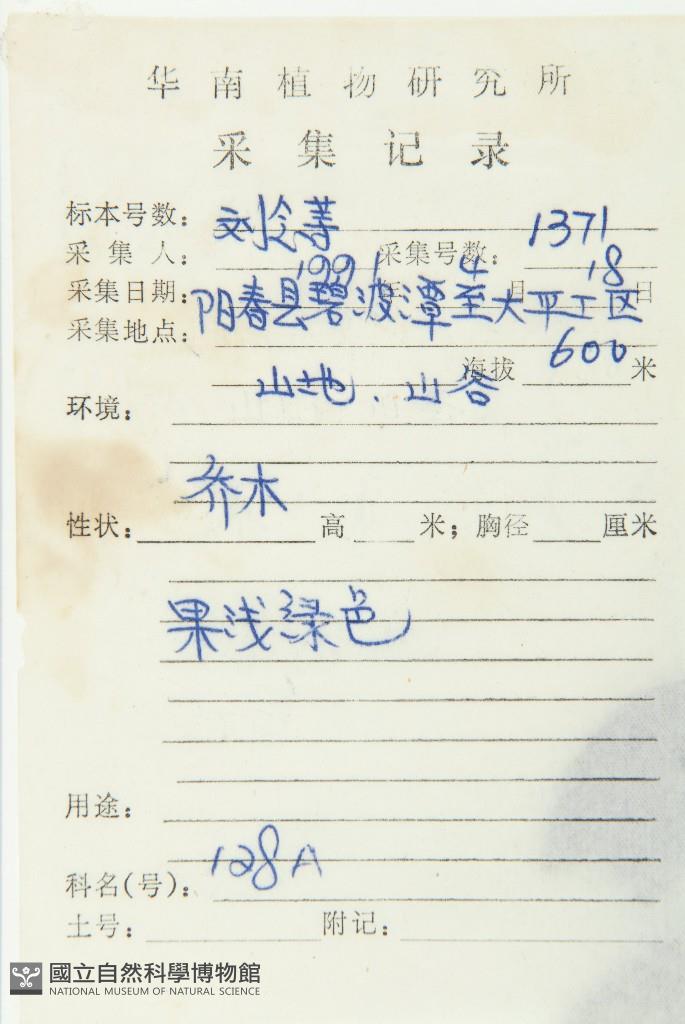 华南植物研究所
采集记录
标本号数：
采集人： 刘念 采集号数： 1371
采集日期： 1991 年 4 月 18 日
采集地点： 阳春县碧波潭至大平工区
海拔 600 米
环境： 山地、山谷
性状： 乔木 高 米；胸径 厘米
果浅绿色
用途：
科名(号)： 128A
土号： 附记：
國立自然科學博物館
NATIONAL MUSEUM OF NATURAL SCIENCE